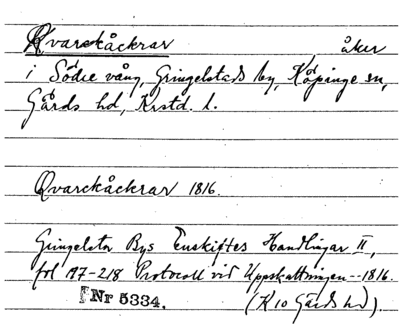 Kvarckåckrar åker
i Södre vång, Gringelstads by, Köpinge sn,
Gärds hd, Krstd. l.
Qvarckåckrar 1816.
Gringelsta Bys Enskiftes Handlingar II,
fol 197-218 Protocoll vid Uppskattningen--1816.
Nr 5334. (K 10 Gärds hd)